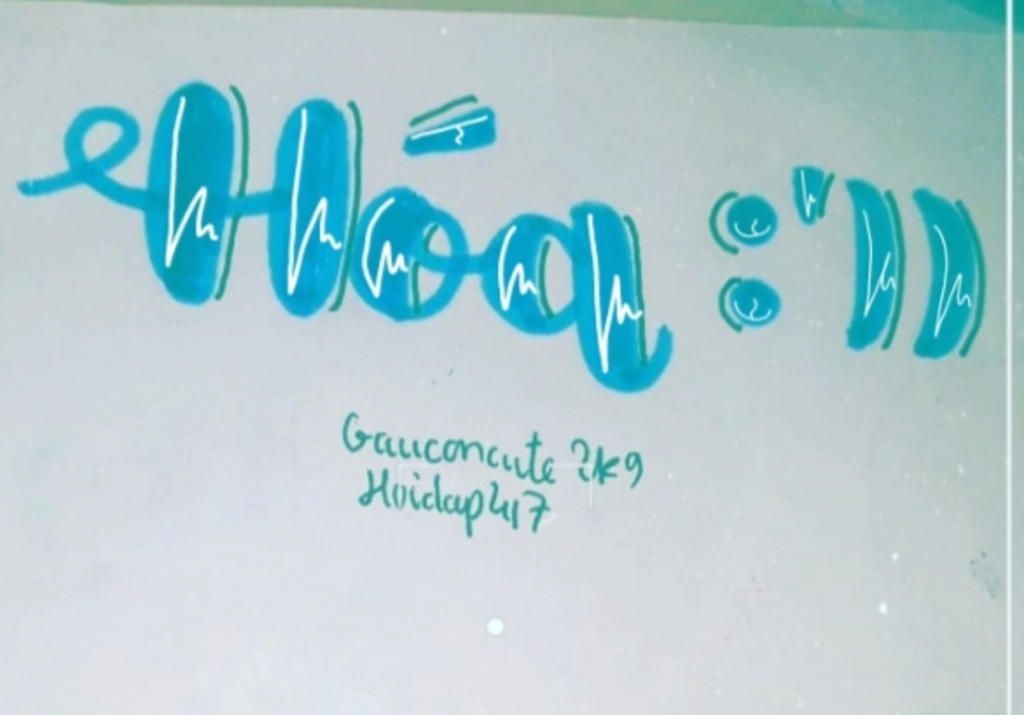 Hóa :'))
Gauconcute 2k9
Hoidap247